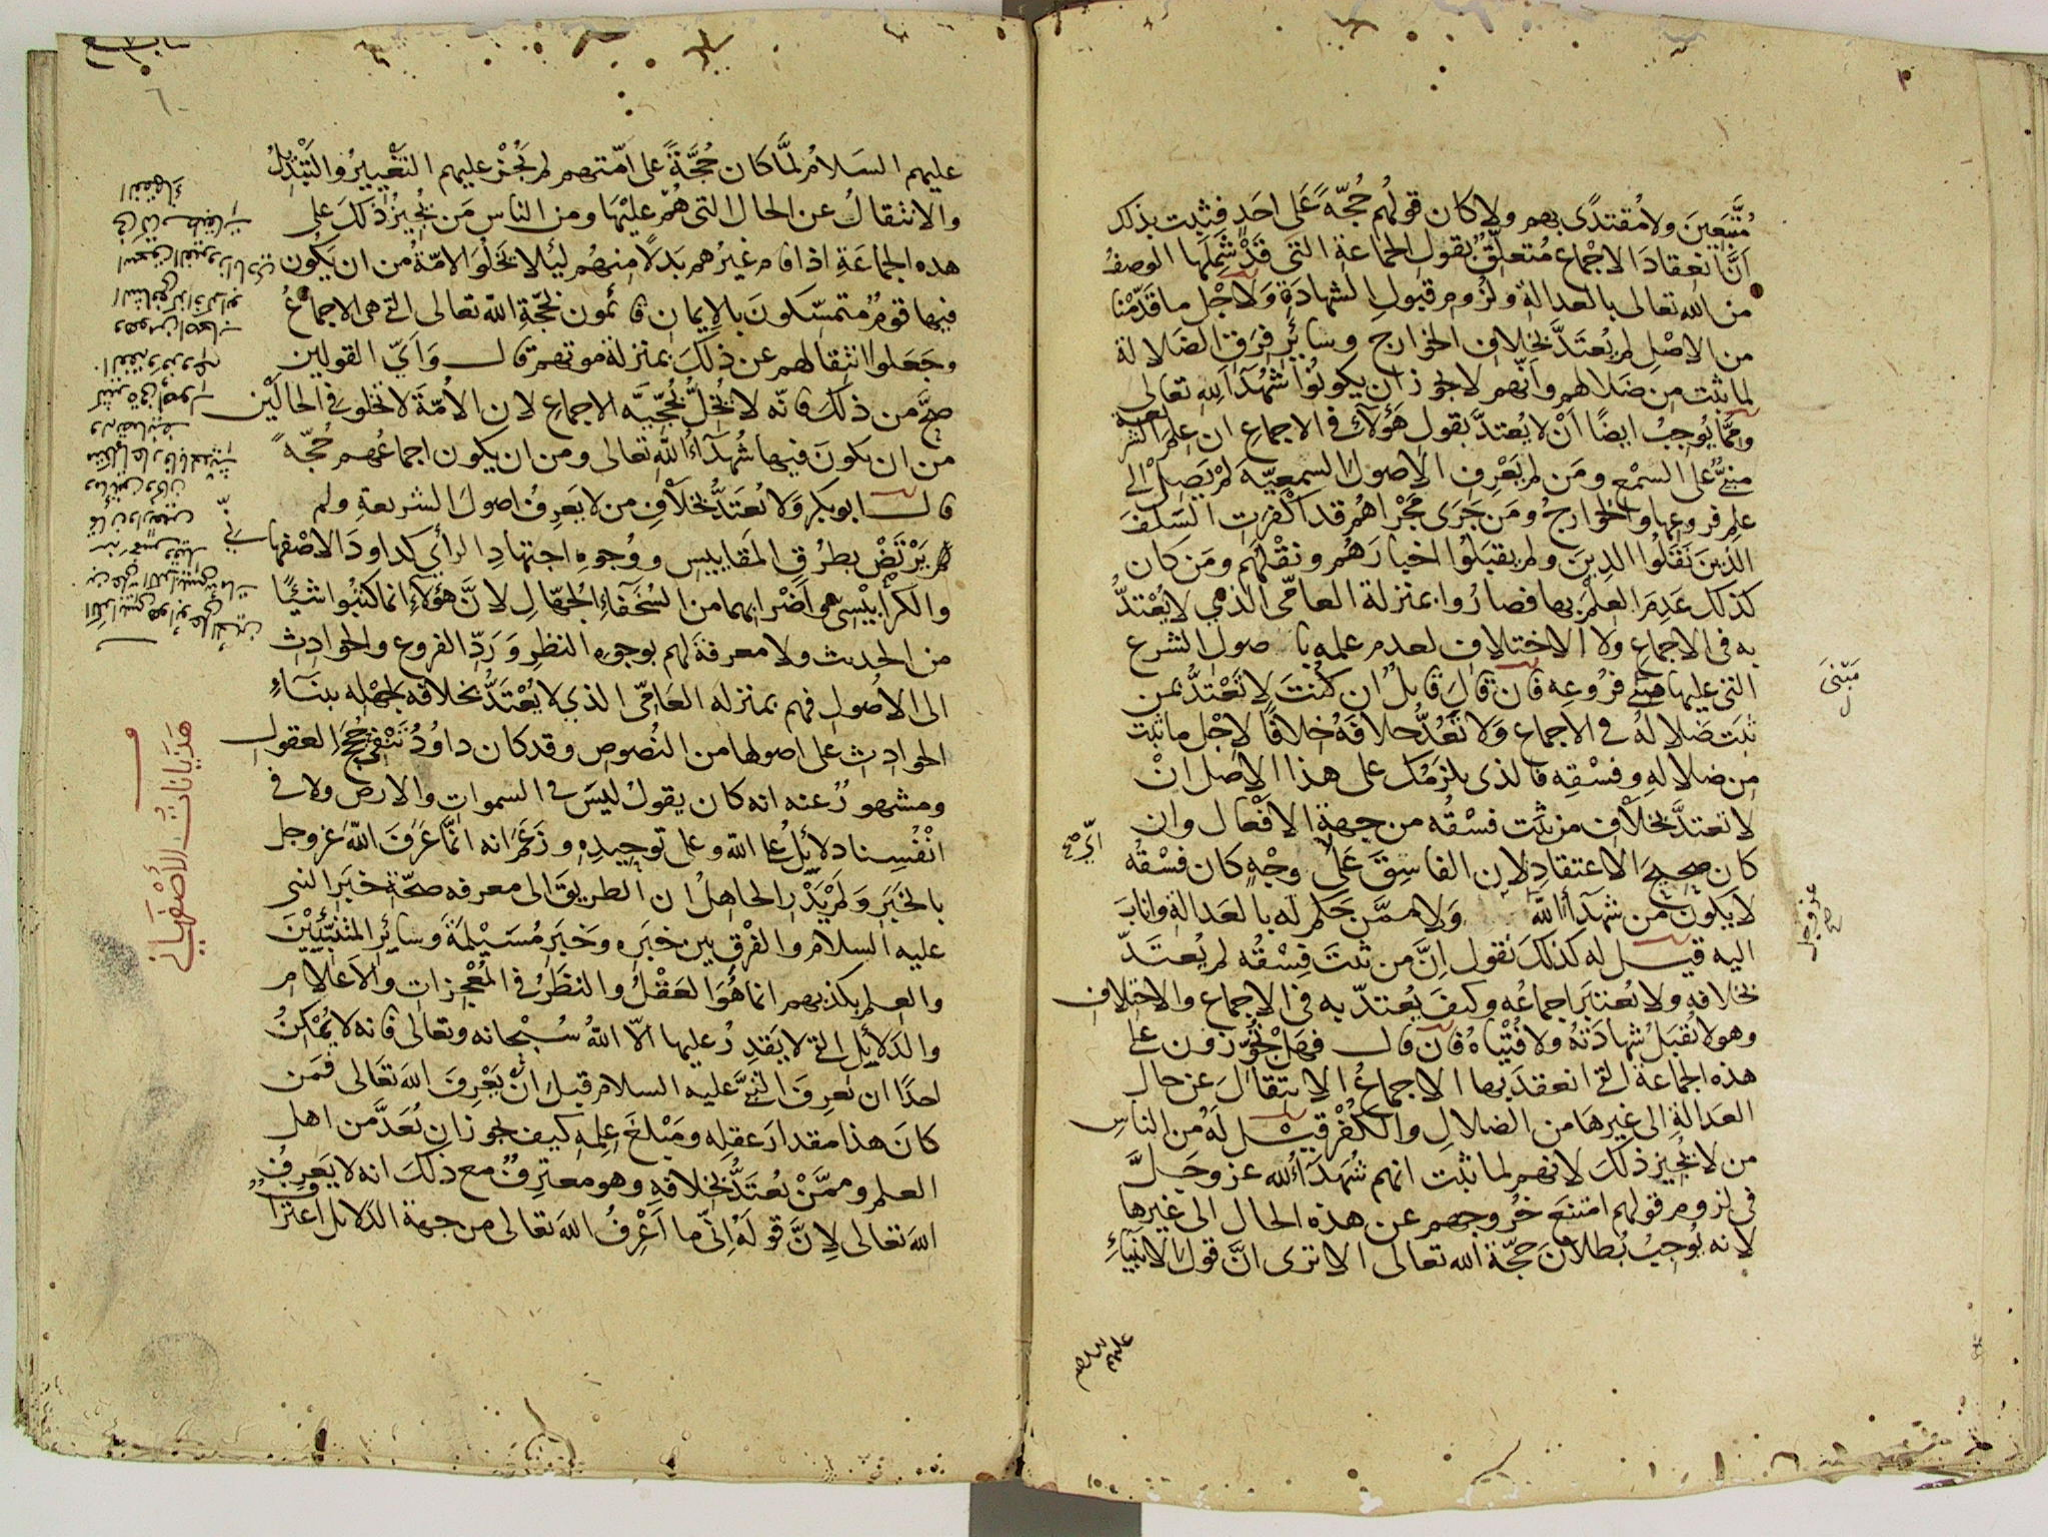 مُتَّبَعِينَ ولا مُقتدًى بهم ولا كان قولُهم حُجّةً عَلى احَدٍ فثبت بذلك
اَنَّ انعِقادَ الاجْماع مُتعلِّقٌ بقول الجماعة التي قَدْ شَمِلَها الوصفُ
من الله تعالى بالعدالةِ ولزُومِ قبولِ الشهادَةِ وَلاجْل ما قَدّمْنا
من الاصْلِ لم يُعتَدَّ بخلاف الخوارج وسائِرِ فِرَقِ الضلالة
لما ثبت من ضلالهم وانّهم لا يجوز ان يكونُوا شُهَدآءَ لله تعالى
وممّا يُوجِبُ ايضًا اَنْ لا يُعتدَّ بقول هَؤُلآء في الاجماعِ ان عِلمَ الشريعة
مبنيٌّ على السمْعِ ومَن لم يَعْرِفِ الاصولَ السمعِيّةَ لم يَصِلْ الى
علم فروعِها والخوارجُ ومَن جَرَى مَجْراهُم قد اكْفَرَتِ السّلَفَ
الذين نَقَلُوا الدِينَ ولم يقبَلُوا اخبارَهُم ونقْلَهُم ومَن كان
كذلك عَدِمَ العِلْمَ بها فصارُوا بمنزلة العامّي الذي لا يُعْتدُّ
به في الاجماع ولا الاختلاف لعدم علمه باصول الشرع
التي عليها مبنى فروعِه فان قالَ قايلٌ ان كُنْتَ لا تَعْتدُّ بمن
ثبَت ضلالهُ في الاجماع وَلا تعُدُّ خلافَهُ خِلافًا لاجْل ما ثبت
من ضلالِهِ وفِسْقِه فالذي يلزمُك على هذا الاصل اَنْ
لا تعتدَّ بخلاف من ثبَت فسْقُه من جِهةِ الافْعال وان
كان صحيحَ الاعتقادِ لان الفاسِقَ عَلَى اي وجْهٍ كان فسْقُه
لا يكون من شهدآء الله عز وجل وَلا ممَّن حكم له بالعدالةِ واناب
اليه قيل له كذلكَ نقول اِنَّ من ثبتَ فِسْقُه لم يُعتَدّ
بخلافه ولا يُعتَبَر اجماعُه وكيفَ يُعتدّ به في الاجماع والاختلاف
وهو لا تُقبَلُ شهادَتُه ولا فُتْياهُ فان قال فهل تُجَوِّزون على
هذه الجماعة التي انعقدَ بها الاجماعُ الانتقالَ عن حال
العدالةِ الى غيرهَا من الضلالِ والكُفْرِ قيل لَهُ من الناسِ
من لا يُجيز ذلكَ لانهم لما ثبت انهم شُهَدآءُ لله عز وجَلَّ
في لزوم قولهم امتنَعَ خُروجهم عن هذه الحال الى غيرها
لانه يُوجِبُ بُطلانَ حجّة الله تعالى الا ترى انَّ قولَ الانبيآءِ
مَبْنَى
اي صح
عز وجل صح
عليهم السلام
عليهم السَلامُ لمَّا كان حُجَّةً على امّتهم لم يَجُزْ عليهم التَغْييرُ والتَبْدِيلُ
والانتقالُ عن الحال التي هُمْ عليْها ومن الناسِ مَن يُجِيزُ ذلكَ على
هذه الجماعَةِ اذا قام غيرُهم بَدَلًا منهُم ليَلا تَخْلُوَ الامّةُ من ان يَكُون
فيها قومٌ مُتمسّكونَ بالايمان قائمون بحُجّةِ الله تعالى التي هي الاجماعُ
وجَعَلوا انتِقالهم عن ذلكَ بمنزلة موتهم قال وَاَيّ القولين
صحَّ من ذلكَ فانّه لا يُخِلُّ بحُجّيّةِ الاجماع لان الاُمّةَ لا تخلو في الحالَيْن
من ان يكونَ فيها شُهَدآءُ الله تعالى ومن ان يكون اجماعُهم حُجّةً
قال ابو بكر وَلا يُعتَدُّ بخلافِ من لا يَعرِفُ اصولَ الشريعةِ ولم
يَرْتَضْ بطرُقِ المقاييسِ ووُجوهِ اجتهادِ الرأي كداودَ الاصْفهاني
والكرابيْسي واضْرابهما من السُخَفآءِ الجُهّالِ لانَّ هؤلآءِ انما كتبُوا شيئًا
من الحديث ولا معرفةَ لهم بوجوه النظرِ وَرَدِّ الفروع والحوادِث
الى الاُصول فهم بمنزله العَامّي الذي لا يُعْتَدُّ بخلافه لجَهْله ببنآءِ
الحوادث على اصولها من النُصوص وقد كان داوُدُ يَنْفي حُجَجَ العقول
ومشهورٌ عنه انه كان يقولُ ليسَ في السموات والارض ولا في
انْفُسِنا دلائِلُ على الله وعلى توحِيدِهِ وزَعَم انه انّما عَرَفَ اللهَ عز وجل
بالخَبَرِ وَلم يَدْرِ الجاهلُ ان الطريقَ الى معرفه صحّةِ خبَرِ النبي
عليه السلام والفرْقِ بين خبَرِه وخَبَرِ مُسَيْلِمَةَ وسائِرِ المتنبِّيْنَ
والعِلم بكذبهم انما هُوَ العَقْلُ والنظَرُ في المُعْجزات والاَعلام
والدَلايِلِ التي لا يَقدِرُ عليها الّا اللهُ سُبْحانه وتعالى فانه لا يُمْكِنُ
احدًا ان يَعرِفَ النبيَّ عليه السلام قبلَ انْ يَعْرِفَ اللهَ تعَالى فمَن
كانَ هذا مقدارَ عقلِه ومَبْلغَ عِلمِه كيف يجوز ان يُعَدَّ من اهل
العلم وممَّنْ يُعتَدُّ بخلافِه وهو معترِفٌ مع ذلكَ انه لا يَعرِفُ
اللهَ تعالى لِانَّ قولَهُ اِنّي ما اَعْرِفُ اللهَ تعالى من جهة الدَلايل اعتِرافٌ
هَذَيانَاتُ الأصْفهَانِي